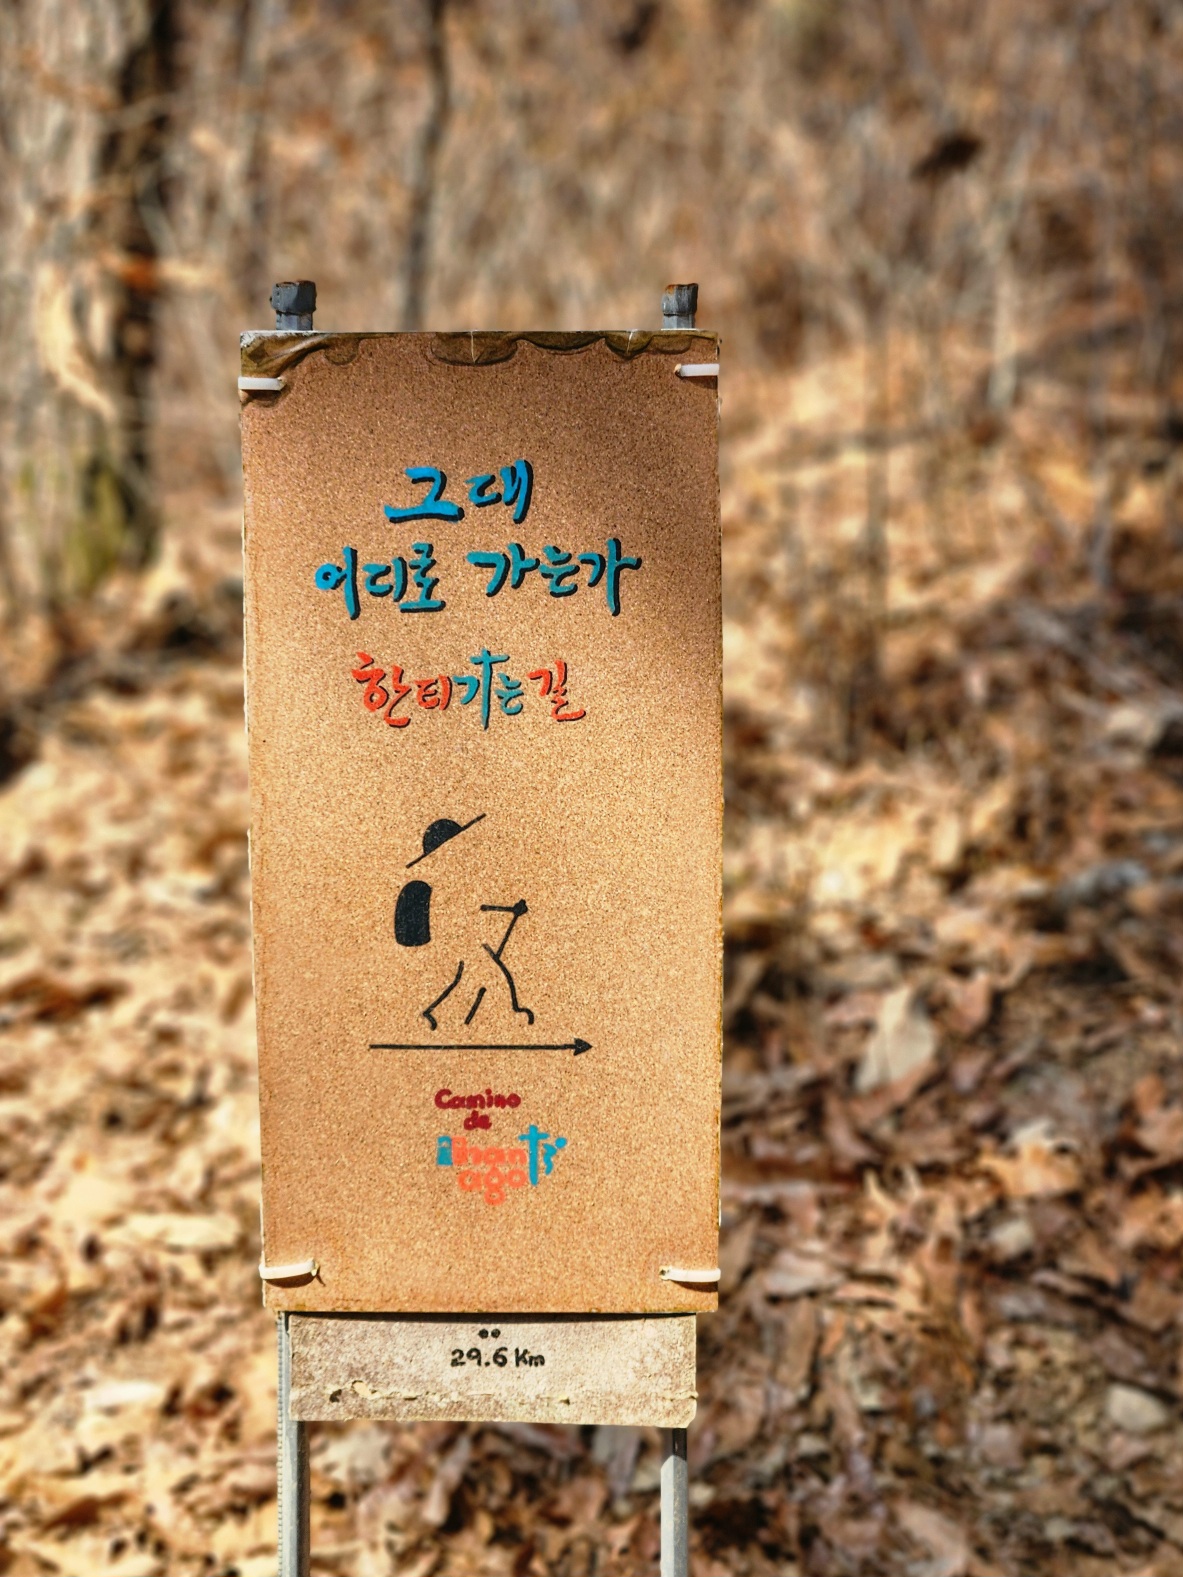 그대
어디로 가는가
한티가는길
Camino
de
Hanti
ago
29.6 Km